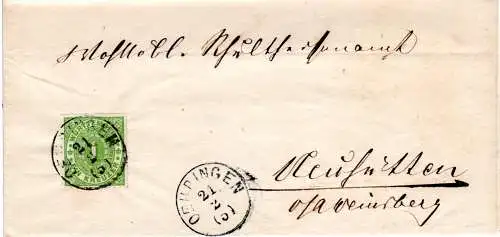 Wohllobl. Schultheisenamt
OEHRINGEN
21
2
(5)
1
OEHRINGEN
21
2
(5)
Neuhütten
o/a Weinsberg